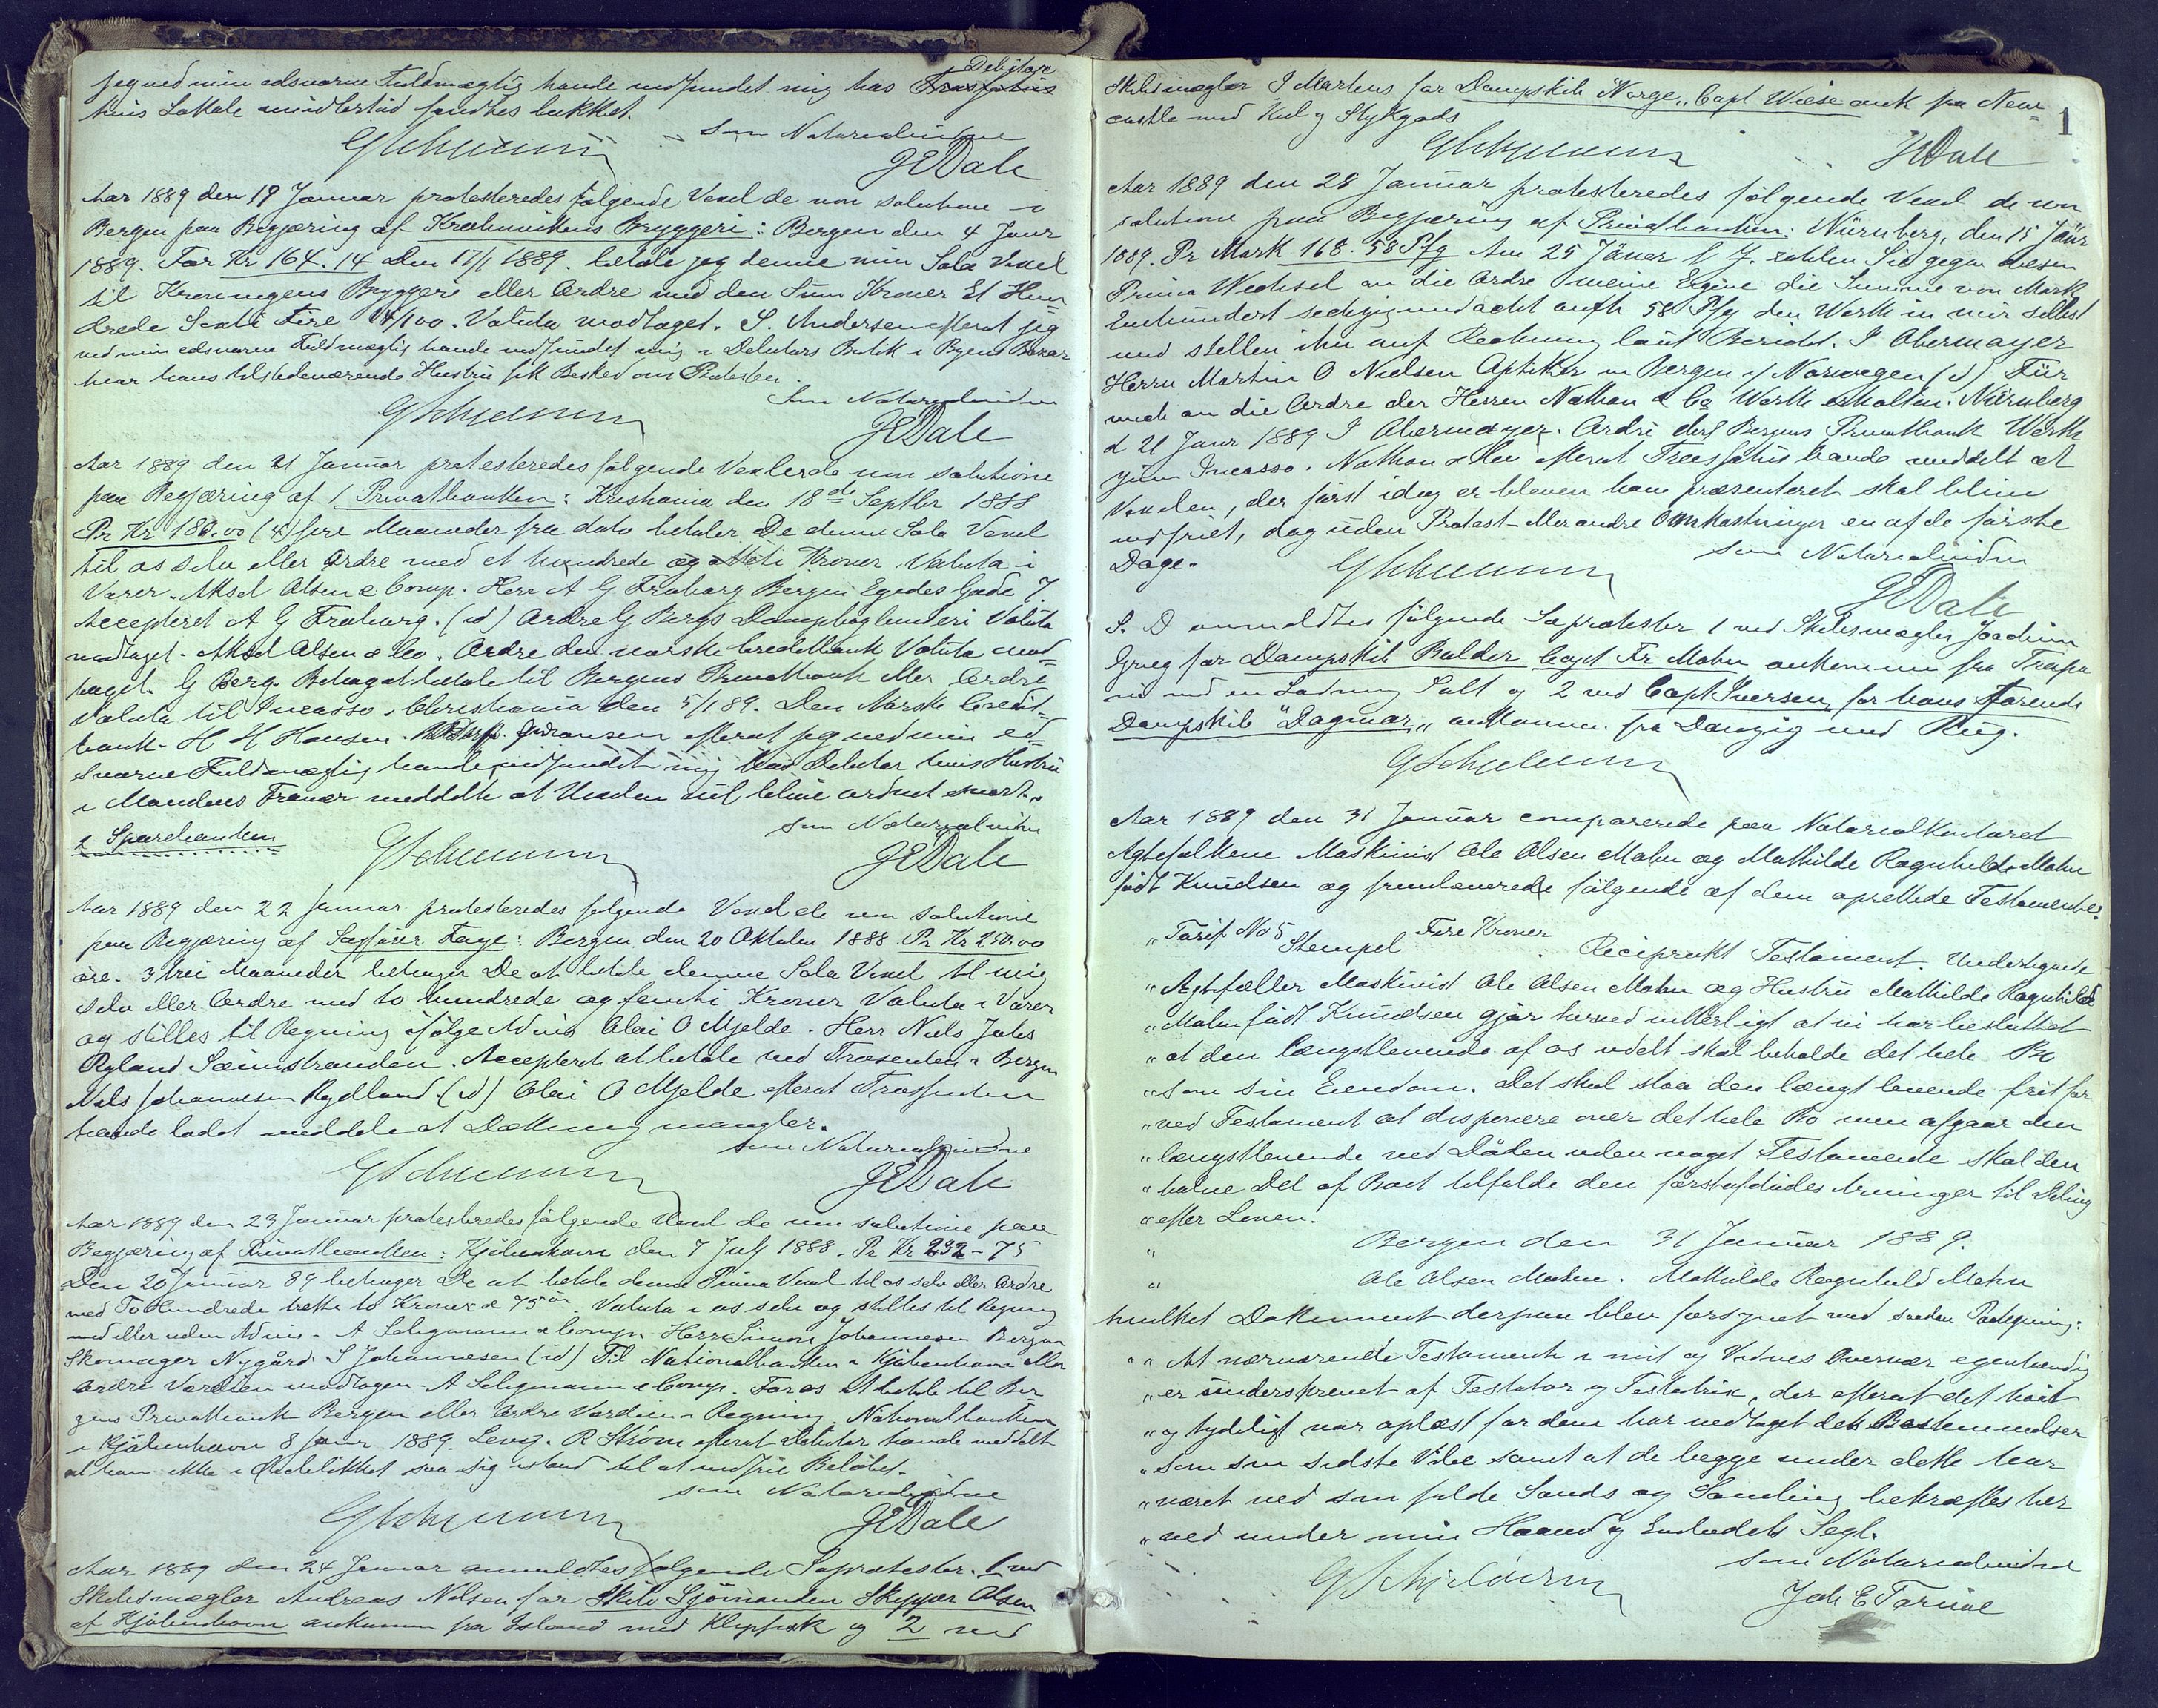 jeg ved min edsvorne Fuldmægtig havde indfundet mig hos Trasfatus Debitor
hvis Lokale imidlertid fandtes lukket.
som Notarialvidne
JEDale
Aar 1889 den 19 Januar protesteredes følgende Vexel de non solutione i
Bergen paa Begjæring af Krohnvikens Bryggeri: Bergen den 4 Janr
1889. For Kr 164.14 Den 17/1 1889. betale jeg denne min Sola Vexel
til Kroningens Bryggeri eller Ordre med den Sum Kroner Et Hun=
drede Sexti Fire 14/100. Valuta modtaget. S. Andersen efterat jeg
ved min edsvorne Fuldmægtig havde indfundet mig i Debitors Butik i Byens Bazar
hvor hans tilstedeværende Hustru fik Besked om Protesten.
Som Notarialvidne
JEDale
Aar 1889 den 21 Januar protesteredes følgende Vexler de non solutione
paa Begjæring af 1 Privatbanken: Kristiania den 18de Septbr 1888
Pr Kr 180.00 (4) fire Maaneder fra dato betaler De denne Sola Vexel
til os selv eller Ordre med et hundrede og otteti Kroner Valuta i
Varer. Aksel Olsen & Comp. Herr A G Froborg Bergen Egedes Gade 7.
Accepteret A G Froborg. (id) Ordre G Bergs Dampbogbinderi Valuta
modtaget. Aksel Olsen & Co. Ordre den norske Creditbank Valuta mod=
taget. G Berg. Behag at betale til Bergens Privatbank eller Ordre
Valuta til Incasso, Christiania den 5/1 89. Den Norske Credit=
bank. H H Hansen. efterat jeg ved min ed=
svorne Fuldmægtig havde indfundet mig hos Debitor hvis Hustru
i Mandens Fravær meddelte at Vexelen vil blive ordnet snart.
2 Sparebanken
som Notarialvidne
JEDale
Aar 1889 den 22 Januar protesteredes følgende Vexel de non solutione
paa Begjæring af Sagfører Faye: Bergen den 20 Oktober 1888 Pr Kr 250.00
øre. 3 trei Maaneder behager De at betale denne Sola Vexel til mig
selv eller Ordre med to hundrede og femti Kroner Valuta i Varer
og stilles til Regning ifølge Advis Olai O Mjelde. Herr Nils Johs
Ryland Sæimstranden. Accepteret at betale ved Præsenten i Bergen
Nils Johannesen Rydland. (id) Olai O Mjelde efterat Trassenten
havde ladet meddele at Dækning mangler.
som Notarialvidne
JEDale
Aar 1889 den 23 Januar protesteredes følgende Vexel de non solutione paa
Begjæring af Privatbanken: Kjøbenhavn den 7 July 1888. Pr Kr 232-75
Den 20 Januar 89 behager De at betale denne Prima Vexel til os selv eller Ordre
med To Hundrede trette to Kroner & 75 ør Valuta i os selv og stilles til Regning
med eller uden Advis. A Seligmann & Comp. Herr Simon Johannesen Bergen
Skomager Nygård. S Johannesen (id) Til Nationalbanken i Kjøbenhavn eller
Ordre Værdien modtagen. A Seligmann & Comp. For os at betale til Ber
gens Privatbank Bergen eller Ordre Værdien i Regning. Nationalbanken
i Kjøbenhavn 8 Janr 1889. Levy. R Strøm efterat Debitor havde meddelt
at han ikke i Øieblikket saa sig istand til at indfrie Beløbet.
som Notarialvidne
JEDale
Aar 1889 den 24 Januar anmeldtes følgende Søprotester. 1 ved
Skibsmægler Andreas Nilsen for Skib Sjömanden Skipper Olsen
af Kjøbenhavn ankommen fra Island med Klipfisk og 2 ved
1
Skibsmægler I Martens for Dampskib "Norge" Capt Wiese ank fra New=
castle med Kul og Stykgods
JEDale
Aar 1889 den 28 Januar protesteredes følgende Vexel de non
solutione paa Begjæring af Privatbanken: Nürnberg, den 15 Jänr
1889. Pr Mark 168.58 Pfg Am 25 Jäner f J. zahlen Sie gegen diesen
Prima Wechsel an die Ordre meine Eigene die Summe von Mark
Einhundert sechzig und acht auch 58 Pfg den Werth in mir selbst
und stellen ihn auf Rechnung laut Bericht. I Obermayer
Herrn Martin O Nielsen Optiker in Bergen i/ Norwegen (id) Für
mich an die Ordre der Herren Nathan & Co Werth erhalten. Nürnberg
d 21 Janr 1889 I Obermayer. Ordre der Bergens Privatbank Werth
zum Incasso. Nathan & Co efterat Trassatus havde meddelt at
Vexelen, der först idag er bleven ham præsenteret skal blive
indfriet, dog uden Protest- eller andre Omkostninger en af de förste
Dage.
som Notarialvidne
JEDale
S. D anmeldtes fölgende Søprotester 1 ved Skibsmægler Joachim
Grieg for Dampskib Balder Capt Fr Mohn ankommen fra Trapa
ni med en Ladning Salt og 2 ved Capt Iversen for hans förende
Dampskib "Dagmar" ankommen fra Danzig med Rug.
Aar 1889 den 31 Januar comparerede paa Notarialkontoret
Ægtefolkene Maskinist Ole Olsen Mohn og Mathilde Ragnhild Mohn
född Knudsen og fremleverede fölgende af dem oprettede Testamente:
" Tarif No 5 Stempel Fire Kroner. Reciprokt Testament. Undertegnede
" Ægtefæller Maskinist Ole Olsen Mohn og Hustru Mathilde Ragnhild
" Mohn född Knudsen gjör herved vitterligt at vi har besluttet
" at den længstlevende af os udelt skal beholde det hele Bo
" som sin Eiendom. Det skal staa den længst levende frit for
" ved Testament at disponere over det hele Bo men afgaar den
" længstlevende ved Döden uden noget Testamente skal den
" halve Del af Boet tilfalde den förstafdødes Arvinger til Deling
" efter Loven.
" Bergen den 31 Januar 1889.
" Ole Olsen Mohn. Mathilde Ragnhild Mohn
hvilket Dokument derpaa blev forsynet med saadan Paategning:
" " At nærværende Testamente i mit og Vidnes Overvær egenhændig
" er underskrevet af Testator og Testatrix, der efterat det höit
" og tydeligt var oplæst for dem har vedtaget dets Bestemmelser
" som sin sidste Villie samt at de begge under dette har
" været ved sin fulde Sands og Samling bekræftes her
" ved under min Haand og Embedets Segl.
som Notarialvidne